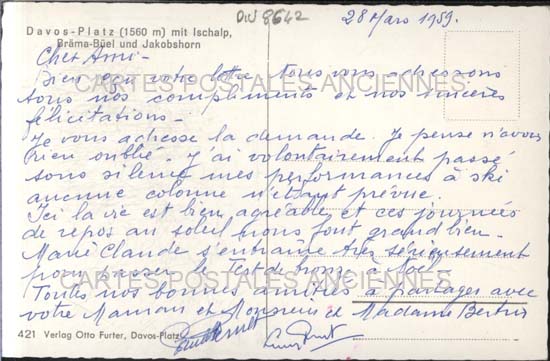 DW 8642
28 Mars 1959.
Davos-Platz (1560 m) mit Ischalp,
Bräma-Büel und Jakobshorn
Cher Ami -
Bien reçu votre lettre. Tous vous adressons
tous nos compliments et nos sincères
félicitations -
Je vous adresse la demande. Je pense n'avoir
rien oublié. J'ai volontairement passé
sous silence mes performances à ski
aucune colonne n'étant prévue.
Ici la vie est bien agréable et ces journées
de repos au soleil nous font grand bien -
Marie Claude s'entraîne très sérieusement
pour passer le Test de bronze
Toutes nos bonnes amitiés à partager avec
votre Maman et Monsieur et Madame
421 Verlag Otto Furter, Davos-Platz
CARTES POSTALES ANCIENNES
CARTES POSTALES ANCIENNES